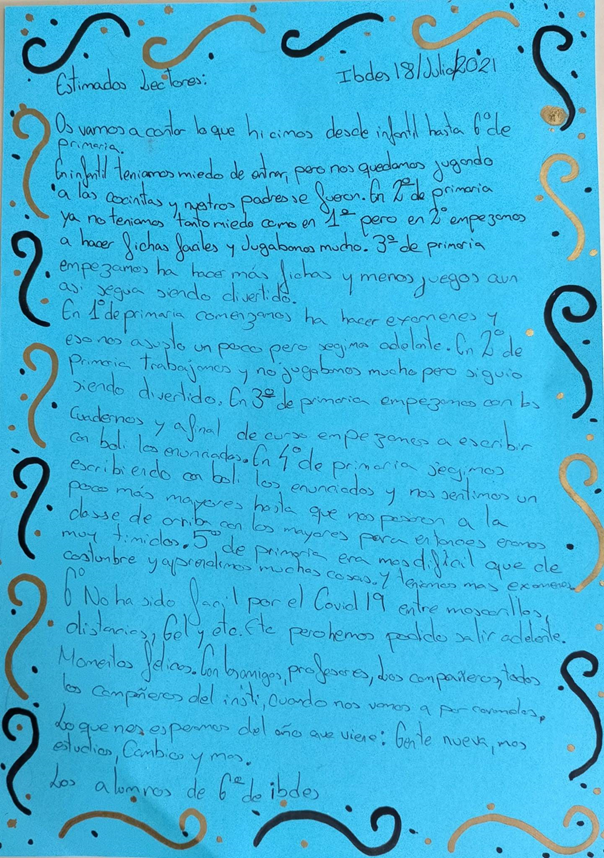 Ibdes 18/Julio/2021
Estimados Lectores:
Os vamos a contar lo que hicimos desde infantil hasta 6º de
primaria.
En infantil teniamos miedo de entrar, pero nos quedamos jugando
a las cocinitas y nuestros padres se fueron. En 2º de primaria
ya no teniamos tanto miedo como en 1º pero en 2º empezamos
a hacer fichas faciles y Jugabamos mucho. 3º de primaria
empezamos ha hacer más fichas y menos juegos aun
asi seguia siendo divertido.
En 1º de primaria comenzamos ha hacer examenes y
eso nos asusto un poco pero segimos adelante. En 2º de
Primaria trabajamos y no jugabamos mucho pero siguio
siendo divertido. En 3º de primaria empezamos con los
Cuadernos y a final de curso empezamos a escribir
con boli los enunciados. En 4º de primaria segimos
escribiendo con boli los enunciados y nos sentimos un
poco más mayores hasta que nos pasaron a la
classe de arriba con los mayores para entonces eramos
muy timidos. 5º de primaria era mas dificil que de
costumbre y aprendimos muchas cosas. y teniamos mas examenes
6º No ha sido facil por el Covid 19 entre mascarillas,
distancias, Gel y etc. Etc pero hemos podido salir adelante.
Momentos felices. Con los amigos, profesores, Los compañeros, todos
los compañeros del insti, Cuando nos vamos a por caramelos.
Lo que nos esperamos del año que viene: Gente nueva, mas
estudios, Cambios y mas.
Los alumnos de 6º de ibdes